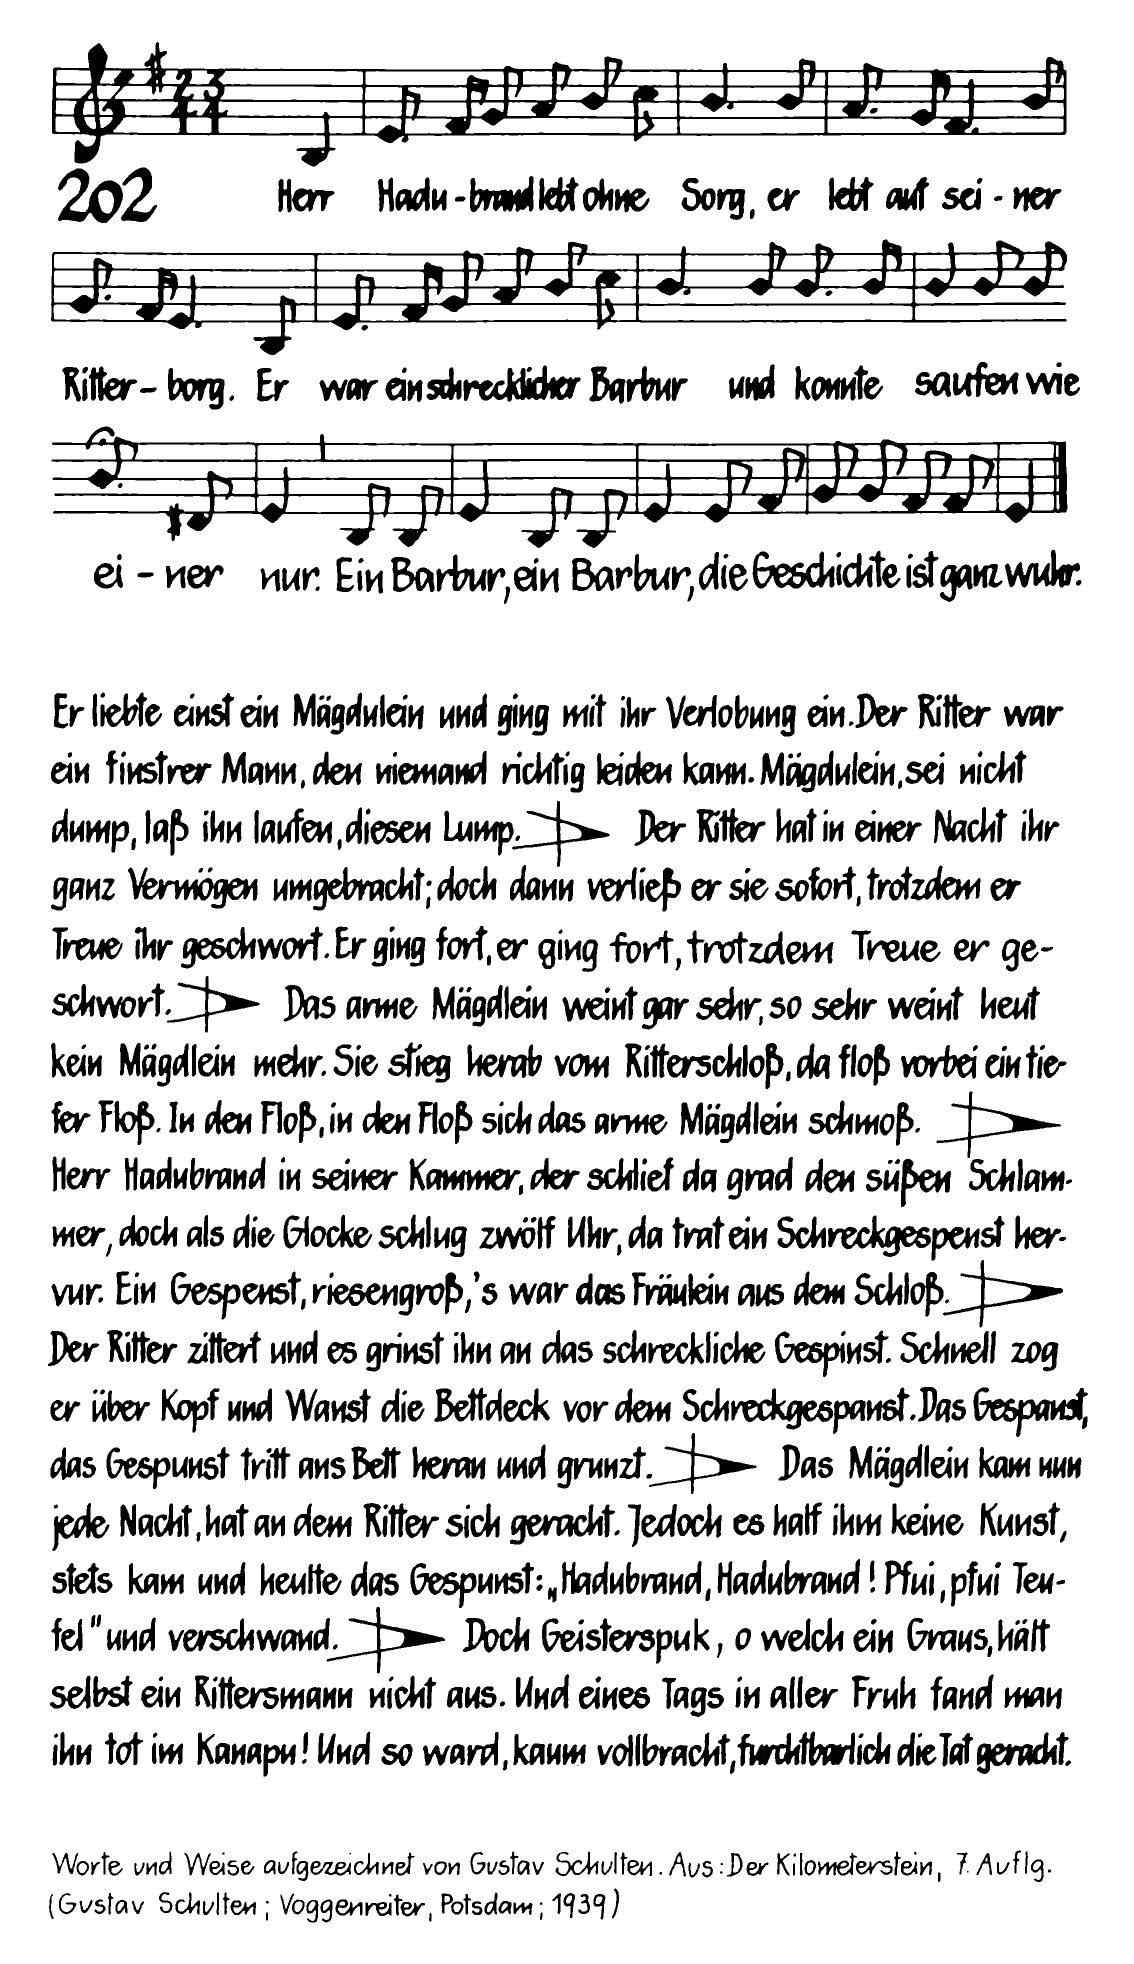 2 3
4 4
202 Herr Hadu-brand lebt ohne Sorg, er lebt auf sei-ner
Ritter-borg. Er war ein schrecklicher Barbur und konnte saufen wie
ei-ner nur. Ein Barbur, ein Barbur, die Geschichte ist ganz wuhr.
Er liebte einst ein Mägdulein und ging mit ihr Verlobung ein. Der Ritter war
ein finstrer Mann, den niemand richtig leiden kann. Mägdulein, sei nicht
dump, laß ihn laufen, diesen Lump. Der Ritter hat in einer Nacht ihr
ganz Vermögen umgebracht; doch dann verließ er sie sofort, trotzdem er
Treue ihr geschwort. Er ging fort, er ging fort, trotzdem Treue er ge-
schwort. Das arme Mägdlein weint gar sehr, so sehr weint heut
kein Mägdlein mehr. Sie stieg herab vom Ritterschloß, da floß vorbei ein tie-
fer Floß. In den Floß, in den Floß sich das arme Mägdlein schmoß.
Herr Hadubrand in seiner Kammer, der schlief da grad den süßen Schlam-
mer, doch als die Glocke schlug zwölf Uhr, da trat ein Schreckgespenst her-
vur. Ein Gespenst, riesengroß, 's war das Fräulein aus dem Schloß.
Der Ritter zittert und es grinst ihn an das schreckliche Gespinst. Schnell zog
er über Kopf und Wanst die Bettdeck vor dem Schreckgespanst. Das Gespanst,
das Gespunst tritt ans Bett heran und grunzt. Das Mägdlein kam nun
jede Nacht, hat an dem Ritter sich geracht. Jedoch es half ihm keine Kunst,
stets kam und heulte das Gespunst: „Hadubrand, Hadubrand! Pfui, pfui Teu-
fel" und verschwand. Doch Geisterspuk, o welch ein Graus, hält
selbst ein Rittersmann nicht aus. Und eines Tags in aller Fruh fand man
ihn tot im Kanapu! Und so ward, kaum vollbracht, furchtbarlich die Tat geracht.
Worte und Weise aufgezeichnet von Gustav Schulten. Aus: Der Kilometerstein, 7. Auflg.
(Gustav Schulten; Voggenreiter, Potsdam; 1939)